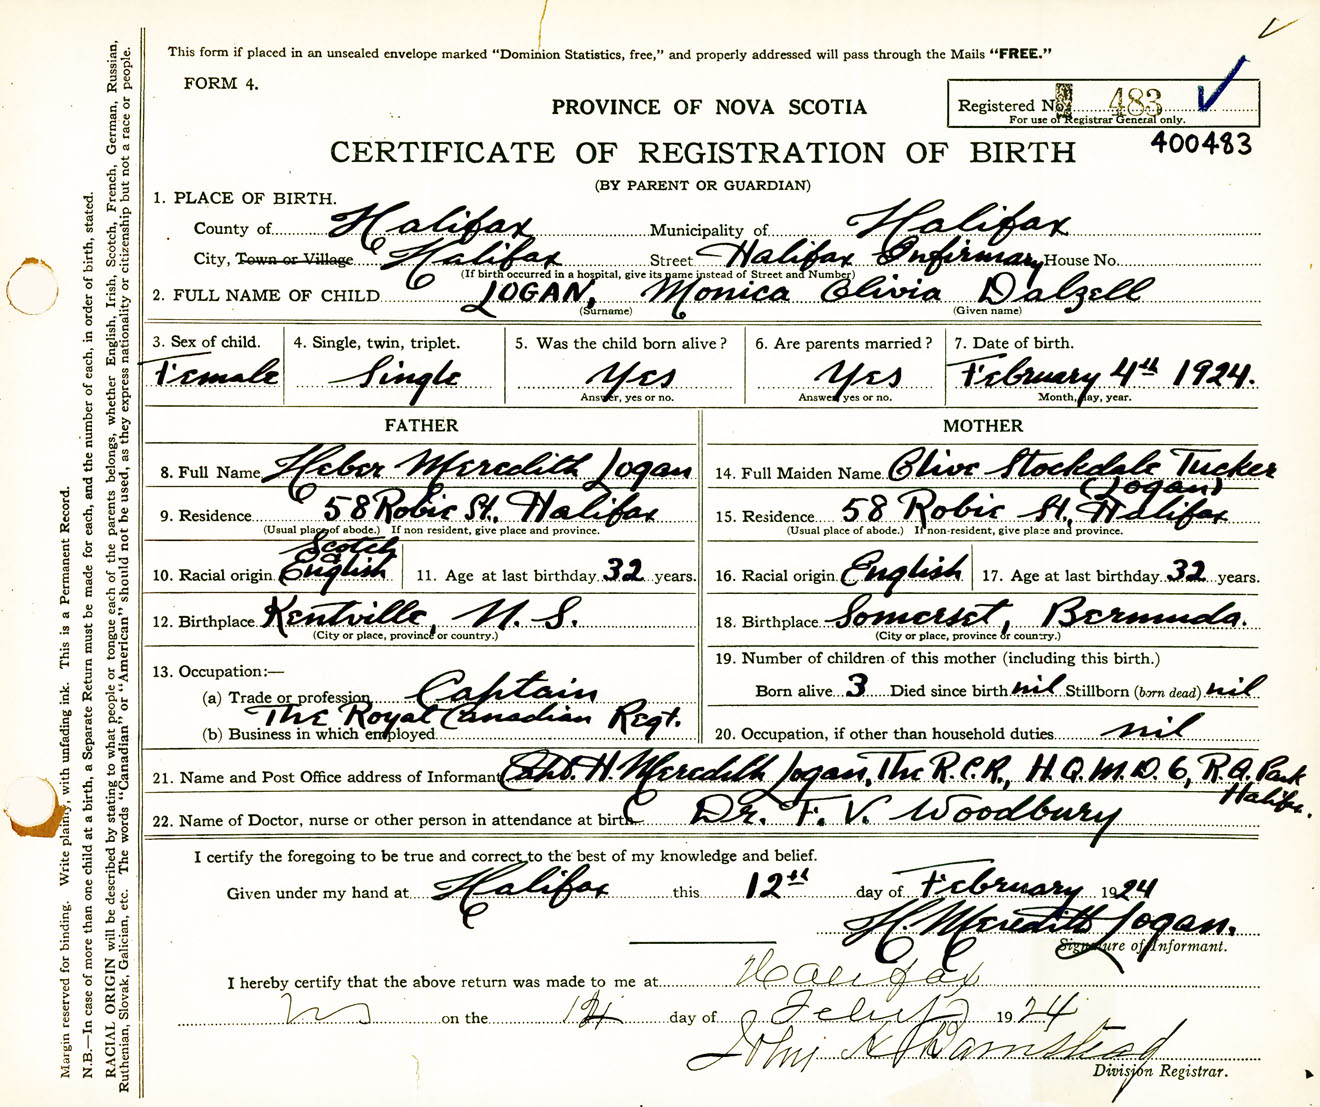 This form if placed in an unsealed envelope marked "Dominion Statistics, free," and properly addressed will pass through the Mails "FREE."
FORM 4.
PROVINCE OF NOVA SCOTIA
Registered No. 483
For use of Registrar General only.
400483
CERTIFICATE OF REGISTRATION OF BIRTH
(BY PARENT OR GUARDIAN)
1. PLACE OF BIRTH.
County of Halifax Municipality of Halifax
City, Town or Village Halifax Street Halifax Infirmary House No.
(If birth occurred in a hospital, give its name instead of Street and Number)
2. FULL NAME OF CHILD LOGAN, Monica Olivia Dalzell
(Surname) (Given name)
3. Sex of child. 4. Single, twin, triplet. 5. Was the child born alive? 6. Are parents married? 7. Date of birth.
Female Single Yes Yes February 4th 1924.
Answer, yes or no. Answer, yes or no. Month, day, year.
FATHER
8. Full Name Heber Meredith Logan
9. Residence 58 Robie St., Halifax
(Usual place of abode.) If non resident, give place and province.
Scotch
10. Racial origin English 11. Age at last birthday 32 years.
12. Birthplace Kentville, N. S.
(City or place, province or country.)
13. Occupation:—
(a) Trade or profession Captain
The Royal Canadian Regt.
(b) Business in which employed
MOTHER
14. Full Maiden Name Olive Stockdale Tucker
(Logan)
15. Residence 58 Robie St, Halifax
(Usual place of abode.) If non-resident, give place and province.
16. Racial origin English 17. Age at last birthday 32 years.
18. Birthplace Somerset, Bermuda.
(City or place, province or country.)
19. Number of children of this mother (including this birth.)
Born alive 3 Died since birth nil Stillborn (born dead) nil
20. Occupation, if other than household duties nil
21. Name and Post Office address of Informant H. Meredith Logan, The R.C.R., H.Q.M.D. 6, R.A. Park
Halifax.
22. Name of Doctor, nurse or other person in attendance at birth Dr. F. V. Woodbury
I certify the foregoing to be true and correct to the best of my knowledge and belief.
Given under my hand at Halifax this 12th day of February 1924
H. Meredith Logan.
Signature of Informant.
I hereby certify that the above return was made to me at Halifax
NS on the day of Feby 1924
John
Division Registrar.
Margin reserved for binding. Write plainly, with unfading ink. This is a Permanent Record.
N.B.—In case of more than one child at a birth, a Separate Return must be made for each, and the number of each, in order of birth, stated.
RACIAL ORIGIN will be described by stating to what people or tongue each of the parents belongs, whether English, Irish, Scotch, French, German, Russian,
Ruthenian, Slovak, Galician, etc. The words "Canadian" or "American" should not be used, as they express nationality or citizenship but not a race or people.